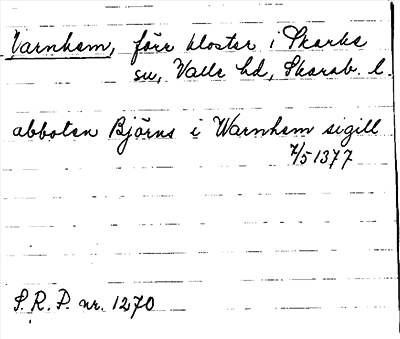 Varnhem, förr kloster i Skarke
sn, Valle hd, Skarab. l.
abboten Björns i Warnhem sigill
7/5 1377
S.R.P. nr. 1270